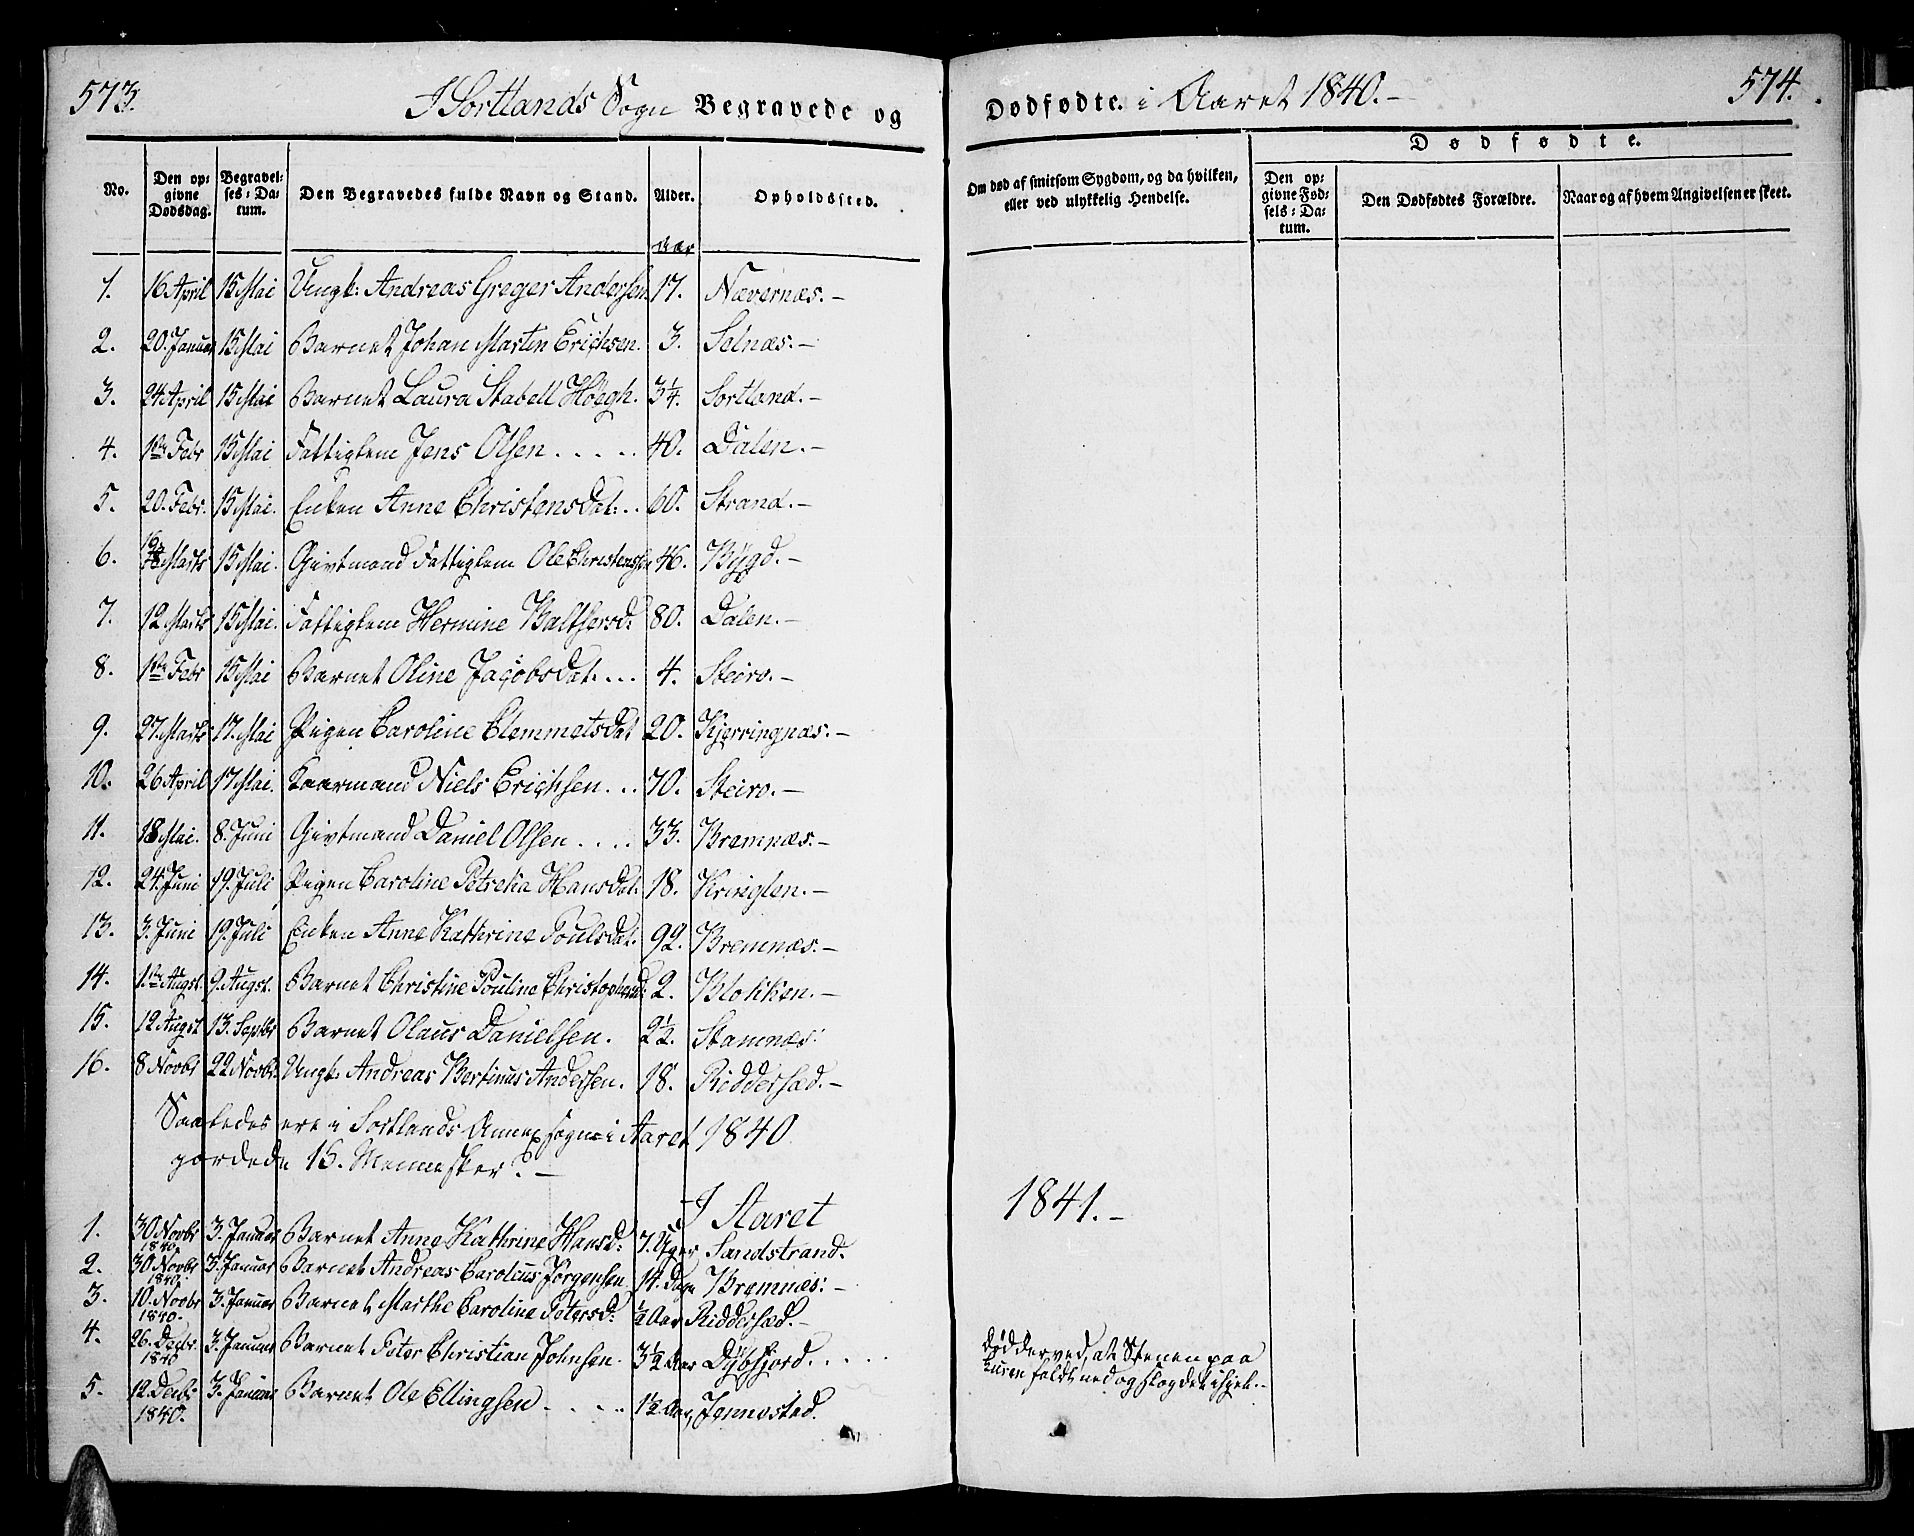 573.
I Sortlands Sogn Begravede og
Dødfødte. i Aaret 1840.-
574.
No.
Den op-
givne
Dødsdag.
Begravel-
ses-Da-
tum.
Den Begravedes fulde Navn og Stand.
Alder.
Opholdssted.
Om død af smitsom Sygdom, og da hvilken,
eller ved ulykkelig Hendelse.
Dødfødte.
Den op-
givne Fød-
sels-Da-
tum.
Den Dødfødtes Forældre.
Naar og af hvem Angivelsen er skeet.
Aar
1. 16 April 15 Mai Ungk: Andreas Greger Andersen 17. Nævernæs.-
2. 20. Januar 15 Mai Barnet Johan Martin Erichsen. 3. Selnæs.-
3. 24 April 15 Mai Barnet Laura Stabell Höegh. 3¼. Sortland.-
4. 1ste Febr 15 Mai Fattiglem Jens Olsen . . . . . 40. Dalen.-
5. 20. Febr. 15 Mai. Enken Anne Christensdat: . . 60. Strand.-
6. Marts 15 Mai. Givtmand Fattiglem Ole Christenssen 46. Bÿgd.-
7. 12 Marts 15 Mai. Fattiglem Hermine Balthersd: 80. Dalen.-
8. 1ste Febr 15 Mai Barnet Oline Jacobsdat. . . . 4. Steiro.-
9. 27. Marts 17. Mai Pigen Caroline Clemmetsdat 20. Kjerringnæs.-
10. 26 April 17 Mai. Kaarmand Niels Erichsen. . . 70. Steiro.-
11. 18 Mai. 8. Juni Givtmand Daniel Olsen . . . . 33. Bremnæs.-
12. 24. Juni 19. Juli Pigen Caroline Petrekka Hansdat: 18. Kringlen.-
13. 3. Juni 19. Juli Enken Anne Kathrine Poulsdat. 92. Bremnæs.-
14. 1ste Augst. 9. Augst. Barnet Christine Pouline Christophersd: 2. Blokken.-
15. 12 Augst 13. Septbr Barnet Olaus Danielsen. 2½. Stamnæs.
16. 8 Novbr 22 Novbr. Ungk: Andreas Bertinus Andersen. 18. Riddersæd.-
Saaledes ere i Sortlands Annexsogn i Aaret 1840.
jordede 16. Mennesker.-
I Aaret
1841.-
1. 30 Novbr 1840. 3. Januar Barnet Anne Kathrine Hansd: 7. Uger Sandstrand.
2. 30 Novbr 1840. 3. Januar Barnet Andreas Carolus Jörgensen 14. Dage Bremnæs.-
3. 10. Novbr 1840. 3. Januar Barnet Marthe Caroline Petersd: ½ Aar Riddersæd.-
4. 26. Decbr. 1840 3. Januar Barnet Peter Christian Johnsen. 3½ Aar Dÿbfjord. . . . .
dödderved, at Stenen paa
faldt ned og slog det ihjel.-
5. 12 Decbr 1840. 3. Januar Barnet Ole Ellingsen . . . . . 1½ Aar, Jennestad.